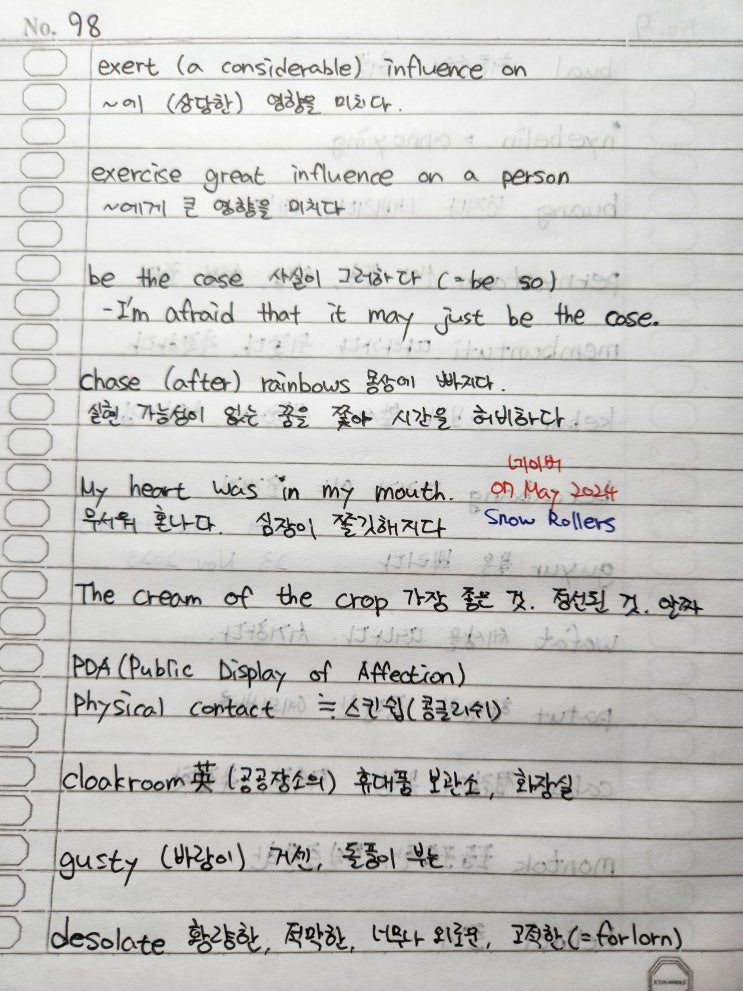 No. 98
exert (a considerable) influence on
~에 (상당한) 영향을 미치다.
exercise great influence on a person
~에게 큰 영향을 미치다
be the case 사실이 그러하다 (=be so)
-I'm afraid that it may just be the case.
chase (after) rainbows 몽상에 빠지다.
실현 가능성이 없는 꿈을 쫓아 시간을 허비하다.
네이버
My heart was in my mouth. on May 2024
무서워 혼나다. 심장이 쫄깃해지다 Snow Rollers
The cream of the crop 가장 좋은 것. 정선된 것. 알짜
PDA (Public Display of Affection)
Physical contact ≒ 스킨쉽(콩글리쉬)
cloakroom 英 (공공장소의) 휴대품 보관소, 화장실
gusty (바람이) 거센, 돌풍이 부는
desolate 황량한, 적막한, 너무나 외로운, 고적한(=forlorn)